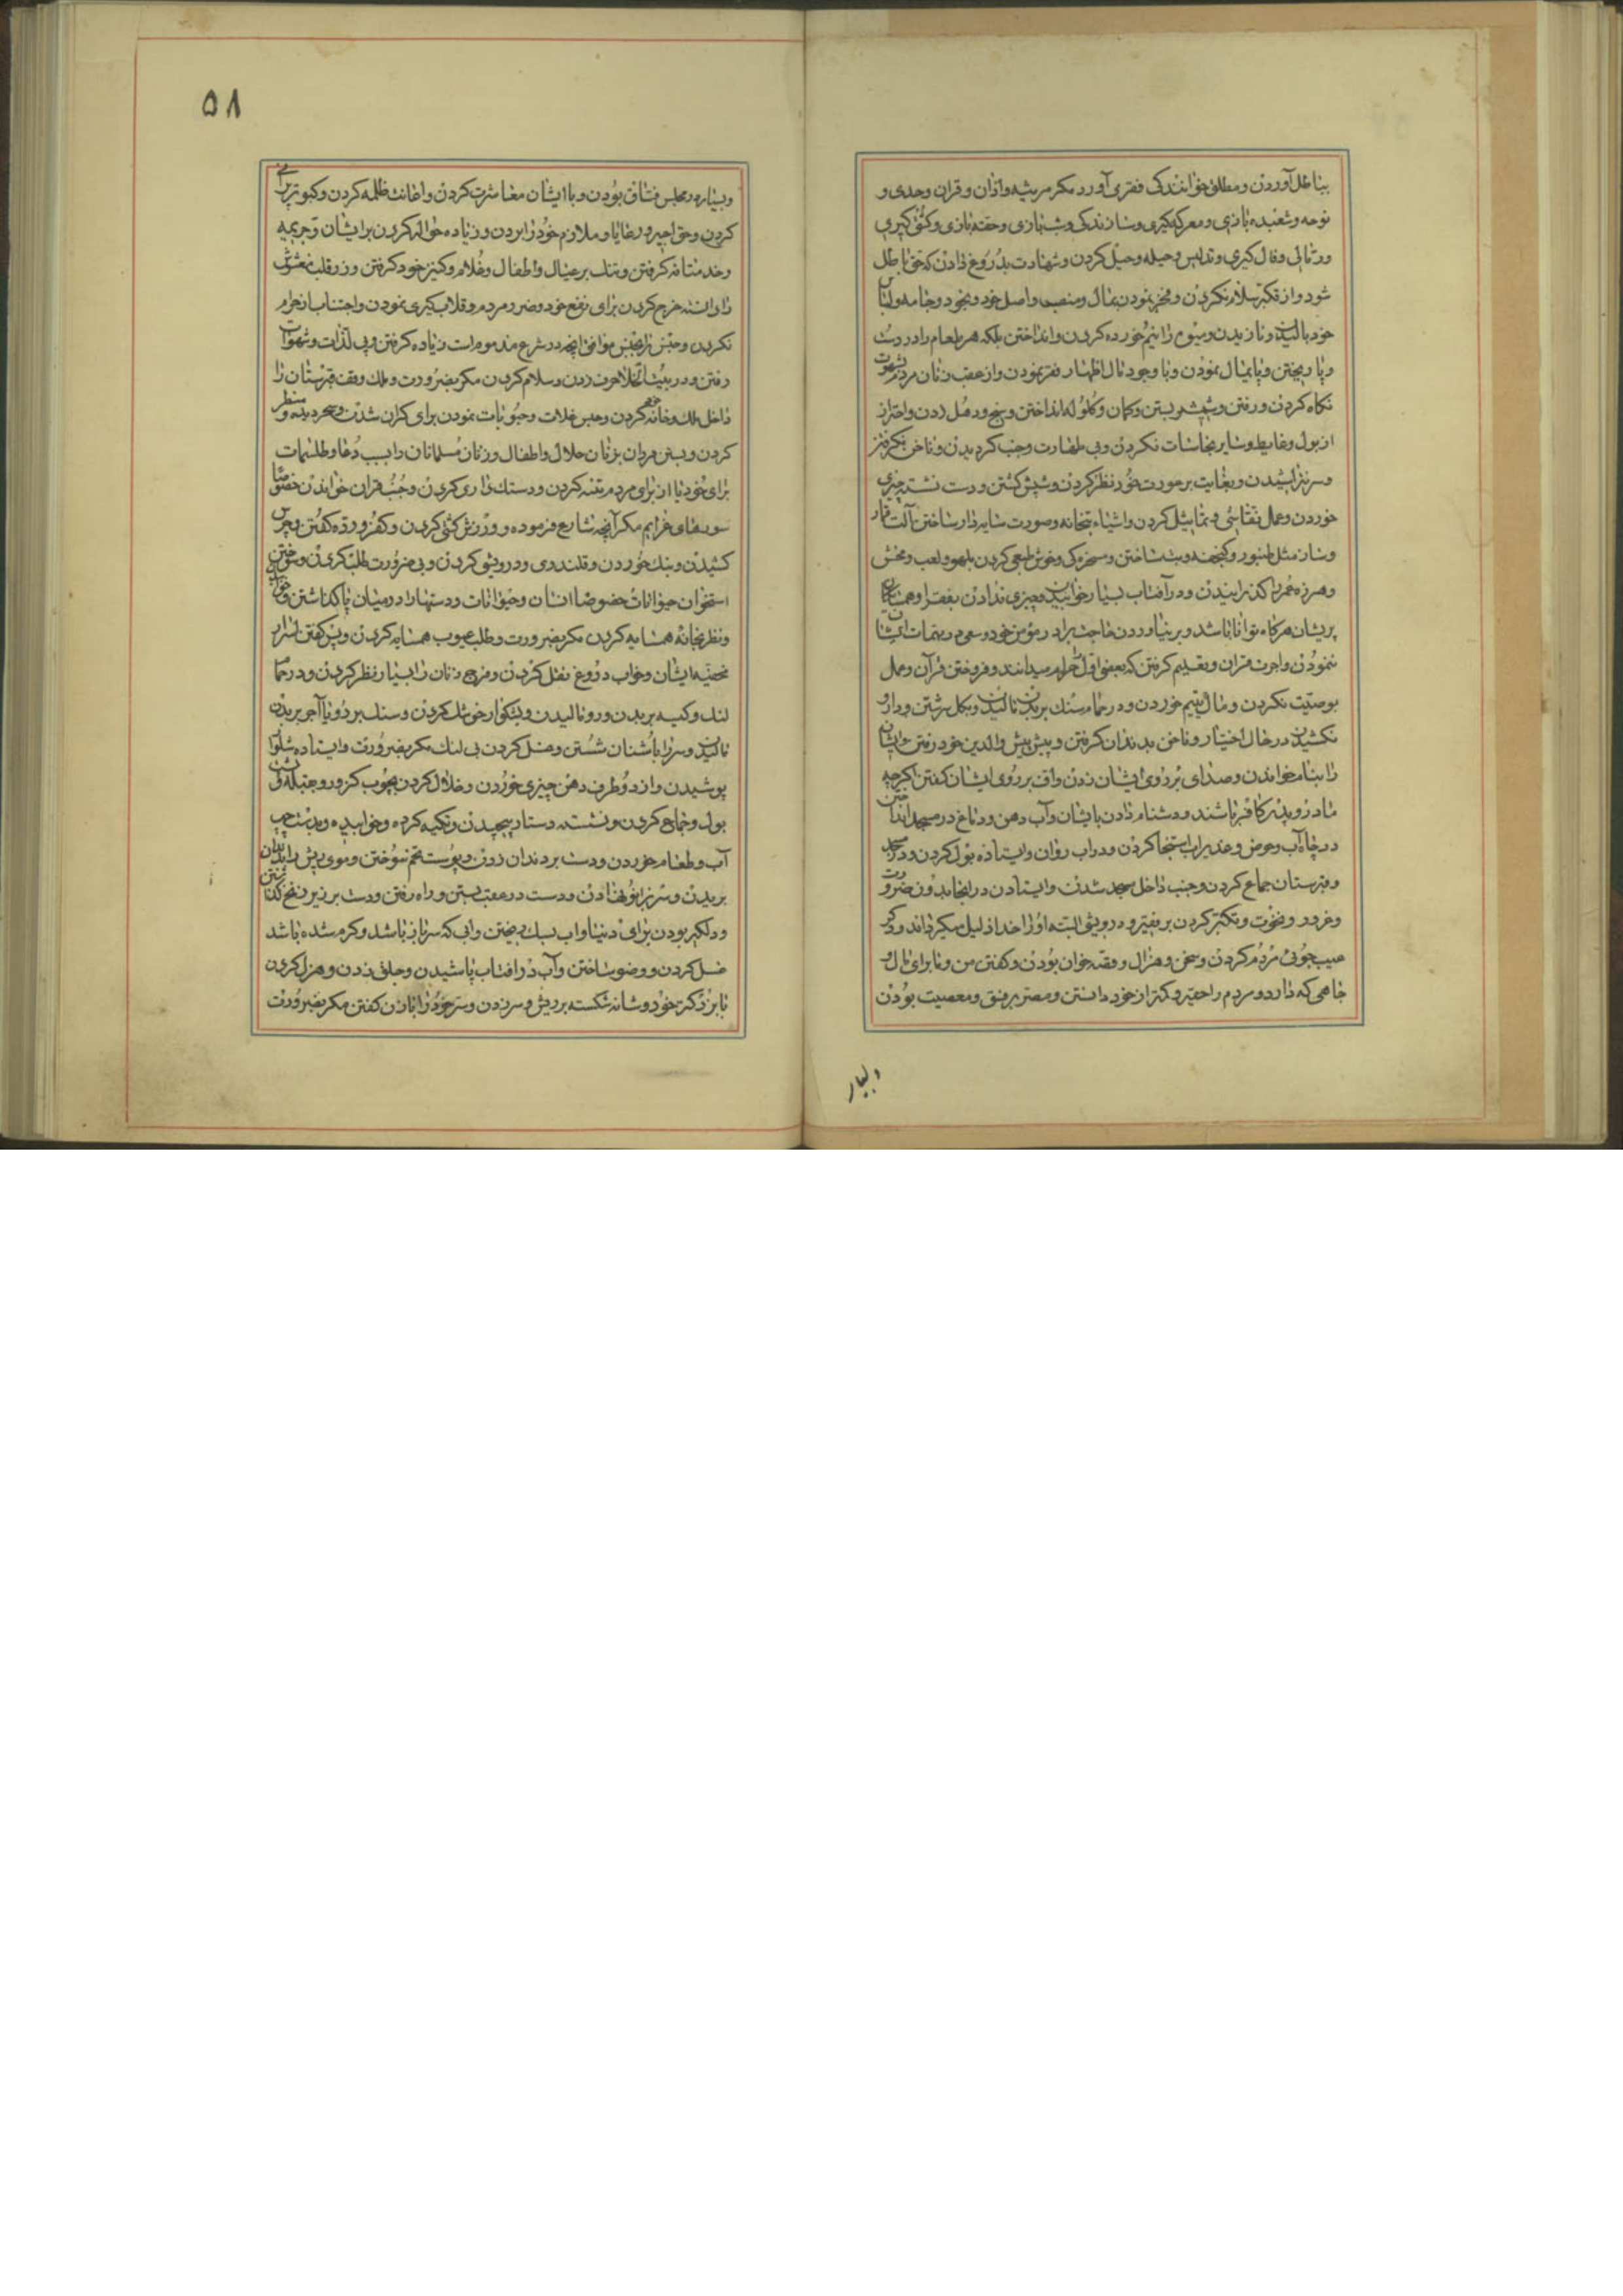 بباطل آوردن و مطلق خوانندگی فقری آورد مکر مرثیه و اذان و قران و حدی و
نوحه و شعبده بازی و معرکه کیری و سازندکی و شب بازی و حقه بازی و کشتی کیری
و رمالی و فال کیری و تدلیس و حیله و حیل کردن و شهادت بدروغ دادن که حق باطل
شود و از تکبر سلام نکردن و فخر نمودن بمال و منصب و اصل خود و بخود و جامه و لباس
خود بالیدن و نازیدن و میوه را نیم خورده کردن و انداختن بلکه هر طعام را در دست
و پا ریختن و پایمال نمودن و با وجود مال اظهار فقر نمودن و از عقب زنان مردم بشهوت
نکاه کردن و رفتن و شمشیر بستن و کمان و کلوله انداختن و پنج و دهل زدن و احتراز
از بول و غایط و سایر نجاسات نکردن و بی طهارت و جنب کردیدن و ناخن نکرفتن
و سر نتراشیدن و بغایت بر عورت خود نظر کردن و شپش کشتن و دست نشسته چیزی
خوردن و عمل نقاشی و تماثیل کردن و اشیاء بتخانه و صورت سایه دار ساختن آلت قمار
و ساز مثل طنبور و کنجفه و بت ساختن و مسخره کی و خوش طبعی کردن بلهو و لعب و فحش
و هرزه عمر را کذرانیدن و در آفتاب بسیار خوابیدن و چیزی ندادن بفقرا و همسایکان
پریشان هرکاه توانا باشد و بر نیاوردن حاجت برادر مؤمن خود و سعی در مهمات ایشان
ننمودن و اجرت قران و تعلیم کرفتن که بعضی اول حرام میدانند و فروختن قرآن و عمل
بوصیّت نکردن و مال یتیم خوردن و در حمام سنک بر بدن مالیدن و بکل سرشتن و دارو
نکشیدن در حال اختیار و ناخن بدندان کرفتن و پیش پیش والدین خود رفتن و ایشان
را بنام خواندن و صدای بر روی ایشان زدن و اف بر روی ایشان کفتن اکرچه
مادر و پدر کافر باشند و دشنام دادن بایشان و آب دهن و دماغ در مسجد انداختن
در چاه آب و حوض و غدیر آب استنجا کردن و در آب روان و ایستاده بول کردن و در مسجد
و قبرستان جماع کردن و جنب داخل مسجد شدن و ایستادن در انجا بدون ضرورت
و غرور و نخوت و تکبر کردن بر فقیر و درویش البته او را خدا ذلیل میکرداند و دکر
عیب جوئی مردم کردن و سخن و هزال و قصه خوان بودن و کفتن من و ما برای مال و
جاهی که دارد و مردم را حقیر و کمتر از خود دانستن و مصر بر فسق و معصیت بودن
و بسیار
۵۸
و بسیار در مجلس فساق بودن و با ایشان معاشرت کردن و اعانت ظلمه کردن و کبوتر پرانی
کردن و حق اجیر و رعایا و ملازم خود را بردن و زیاده حواله کردن بر ایشان و جریمه
و خدمتانه کرفتن و تنک بر عیال و اطفال و غلام و کنیز خود کرفتن و زر قلب مغشوش
را دانسته خرج کردن برای نفع خود و ضرر مردم و قلاب کیری نمودن و اجتناب از حرام
نکردن و جنس را بجنس موافق آنچه در شرع مذموم است زیاده کرفتن و پی لذات و شهوات
رفتن و در بیت الخلا حرف زدن و سلام کردن مکر بضرورت و ملک وقف قبرستان را
داخل ملک و خانه خود کردن و حبس غلات و حبوبات نمودن برای کران شدن و سحر دیده و منظر
کردن و بستن مردان بزنان حلال و اطفال و زنان مسلمانان را بسبب دعا و طلسمات
برای خود یا از برای مردم تتنه کردن و دستک زاری کردن و جنب قران خواندن خصوصا
سورهای عزایم مکر آنچه شارع فرموده و ورزش کشتی کردن و کفر و رده کفتن و چرس
کشیدن و بنک خوردن و قلندری و درویشی کردن و بی ضرورت طلب کردن و سوختن
استخوان حیوانات خصوصا انسان و حیوانات و دستها را در میان پا کذاشتن و خوابیدن
و نظر بخانه همسایه کردن مکر بضرورت و طلب عیوب همسایه کردن و پس کفتن اسرار
مخفیه ایشان و خواب دروغ نقل کردن و فرج زنان را بسیار نظر کردن و در حمام
لنک و کیسه بر بدن و رو مالیدن و بتکوار خوشک کردن و سنک بر دو پا آجر بر بدن
مالیدن و سر را باشنان شستن و غسل کردن بی لنک مکر بضرورت و ایستاده شلوار
پوشیدن و از دو طرف دهن چیزی خوردن و خلال کردن بچوب کز و رو بقبله و پشت
بول و جماع کردن و نشسته دستار پیچیدن و تکیه کرده و خوابیده و بدست چپ
آب و طعام خوردن و دست بر دندان زدن و پوست تخم سوختن و موی ریش را بدندان
بریدن و سر بزانو نهادن و دست در عقب بستن و راه رفتن و دست بر زیر زنخ کذاشتن
و دلکیر بودن برای دنیا و آب سبک ریختن و آبی که سر باز باشد و کرم شده باشد
غسل کردن و وضو ساختن و آب در افتاب پاشیدن و جلق زدن و هزل کردن
با بزرکتر خود و شانه شکسته بر ریش و سر زدن و سر خود را با زن کفتن مکر بضرورت